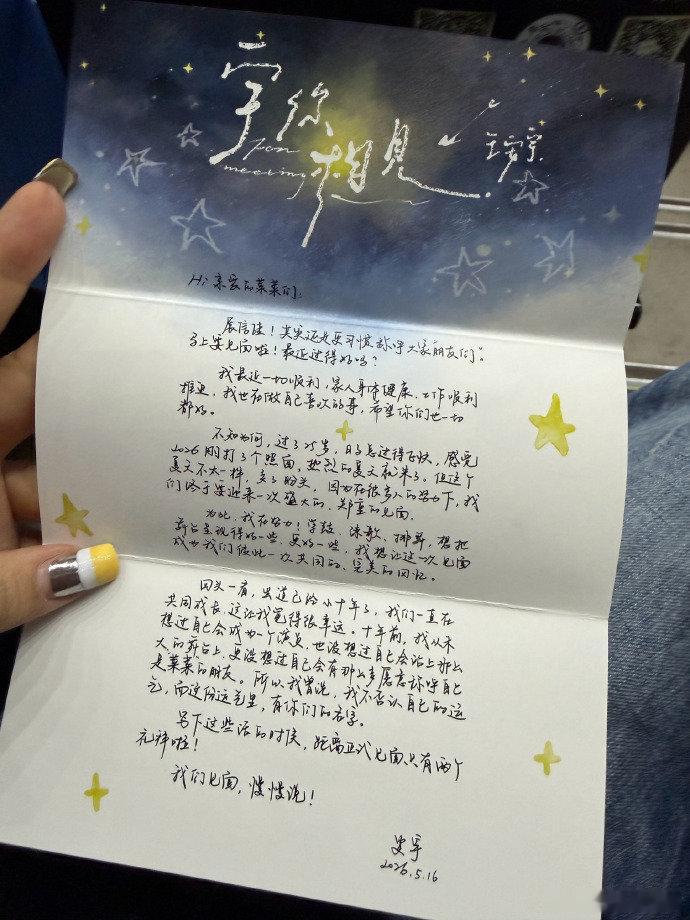 宇你
相見
fan
meeting
Hi 亲爱的菜菜们:
展信佳!其实还没要习惯称呼大家朋友们。
马上要见面啦!最近过得好吗?
我最近一切顺利,家人身体健康、工作顺利
推进,我也在做自己喜欢的事,希望你们也一切
都好。
不知为何,过了25岁,日子总过得飞快,感觉
2026刚打了个照面,热烈的夏天就来了。但这个
夏天不太一样,多了盼头,因为在很多人的努力下,我
们终于要迎来一次盛大的、郑重的见面。
为此,我在努力!学鼓、练歌、排舞,想把
舞台呈现得好一些,更好一些,我想让这一次见面
成为我们彼此一次共同的、完美的回忆。
回头一看,出道已经小十年了,我们一直在
共同成长,这让我觉得很幸运。十年前,我从未
想过自己会成为一个演员,也没想过自己会站上那么
大的舞台上,更没想过自己会有那么多愿意称呼自己
是菜菜的朋友。所以我曾说,我不否认自己的运
气,而这份运气里,有你们的名字。
写下这些话的时候,距离正式见面只有两个
礼拜啦!
我们见面,慢慢说!
2026.5.16